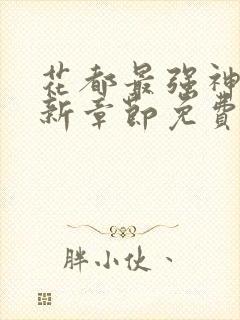 花都最强神
新章節免費
胖小伙、